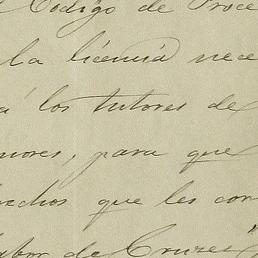 Codigo de Proce
la licencia nece
á los tutores de
nores, para que
rechos que les cor
de Cruzes"